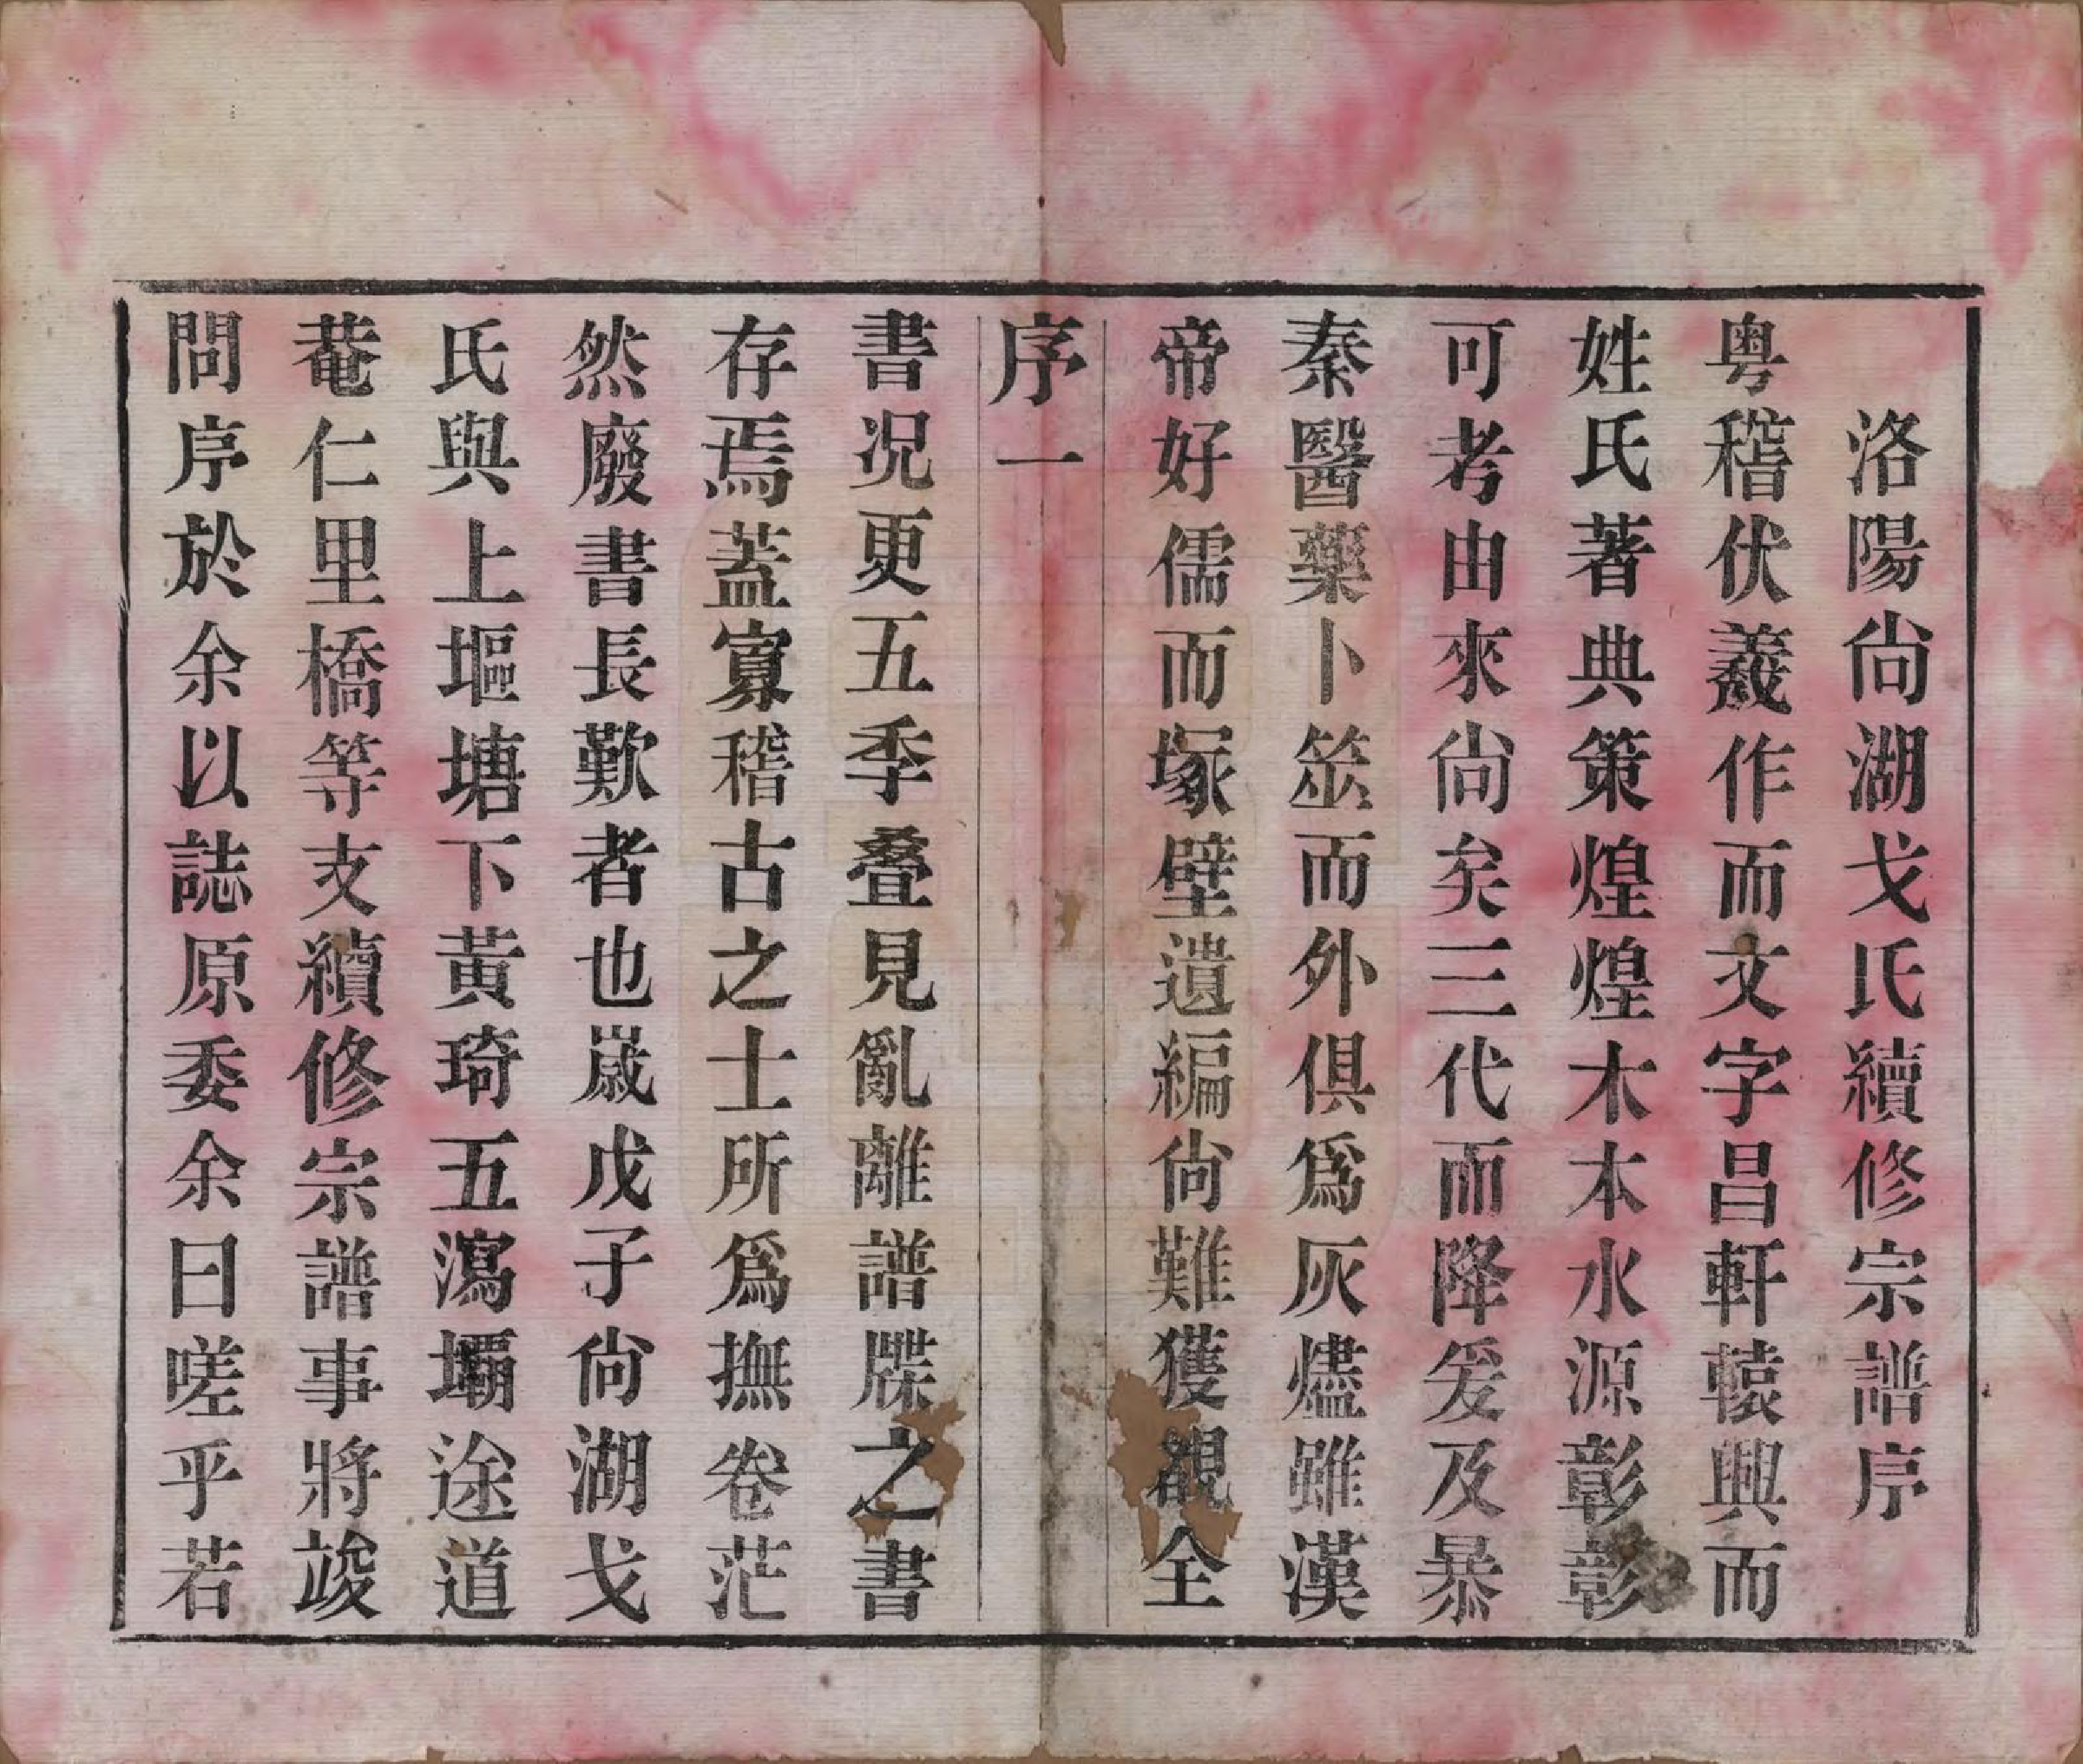 洛陽尙湖戈氏續修宗譜序
粤稽伏羲作而文字昌軒轅興而
姓氏著典策煌煌木本水源彰彰
可考由來尙矣三代而降爰及暴
秦醫藥卜筮而外俱爲灰燼雖漢
帝好儒而塚壁遺編尙難獲覩全
序一
書况更五季叠見亂離譜牒之書
存焉蓋寡稽古之士所爲撫卷茫
然廢書長歎者也嵗戊子尙湖戈
氏與上塸塘下黃琦五瀉壩途道
菴仁里橋等支續修宗譜事將竣
問序於余以誌原委余曰嗟乎若